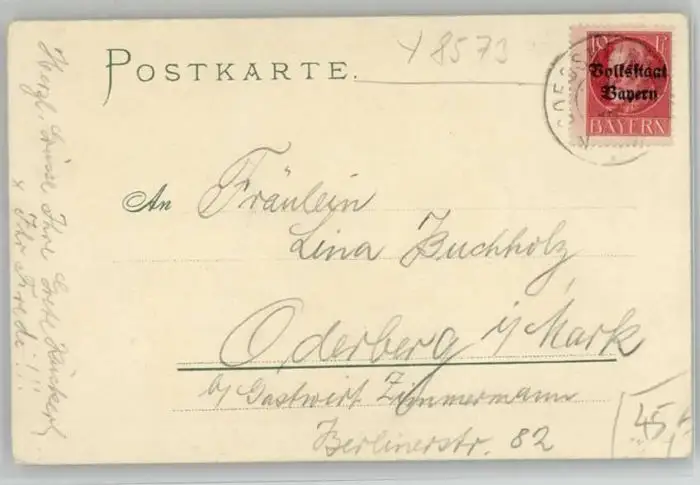 x 8573
POSTKARTE.
10 Pf
Volksstaat
Bayern
BAYERN
An Fräulein
Lina Buchholz,
Oderberg i/Mark
b/ Gastwirt Zimmermann
Berlinerstr. 82
45,-
Herzl. Grüsse Ihre Grete
x Ihr Frede!!!